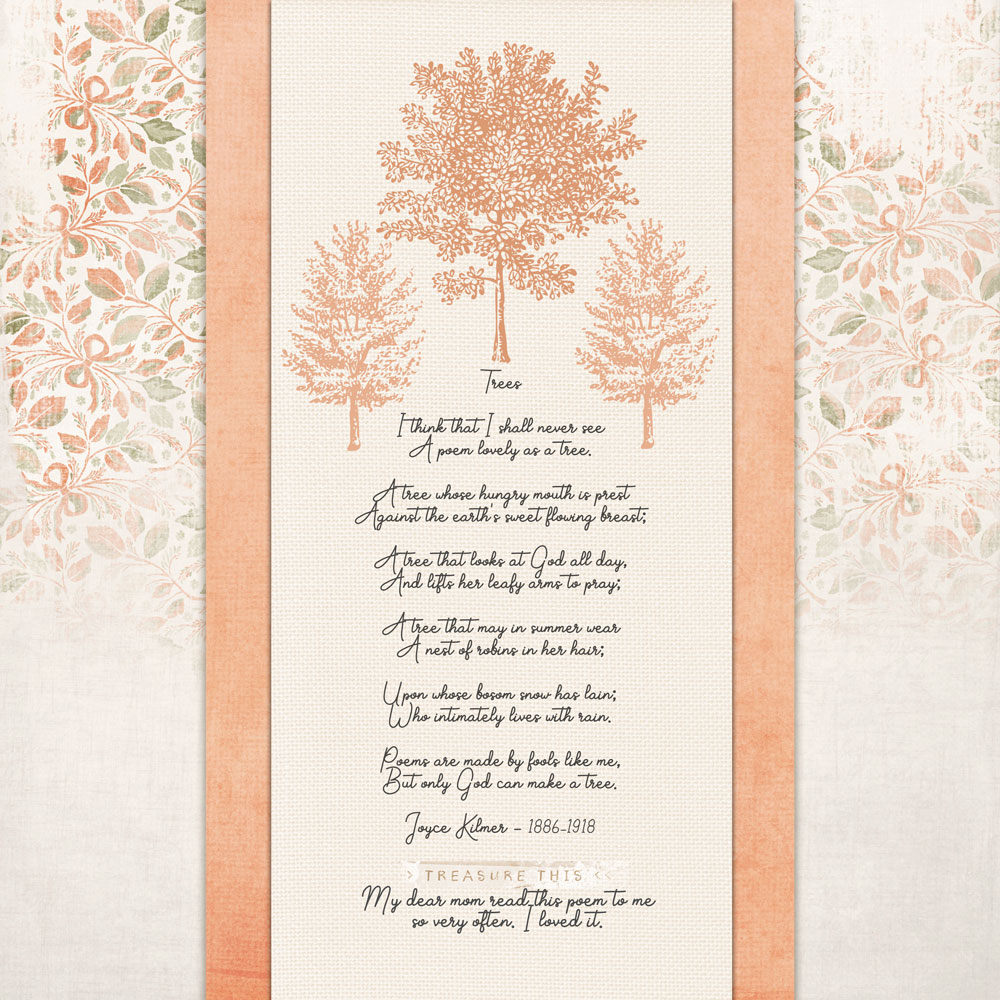 Trees
I think that I shall never see
A poem lovely as a tree.
A tree whose hungry mouth is prest
Against the earth's sweet flowing breast;
A tree that looks at God all day,
And lifts her leafy arms to pray;
A tree that may in summer wear
A nest of robins in her hair;
Upon whose bosom snow has lain;
Who intimately lives with rain.
Poems are made by fools like me,
But only God can make a tree.
Joyce Kilmer - 1886-1918
> TREASURE THIS <<
My dear mom read this poem to me
so very often. I loved it.